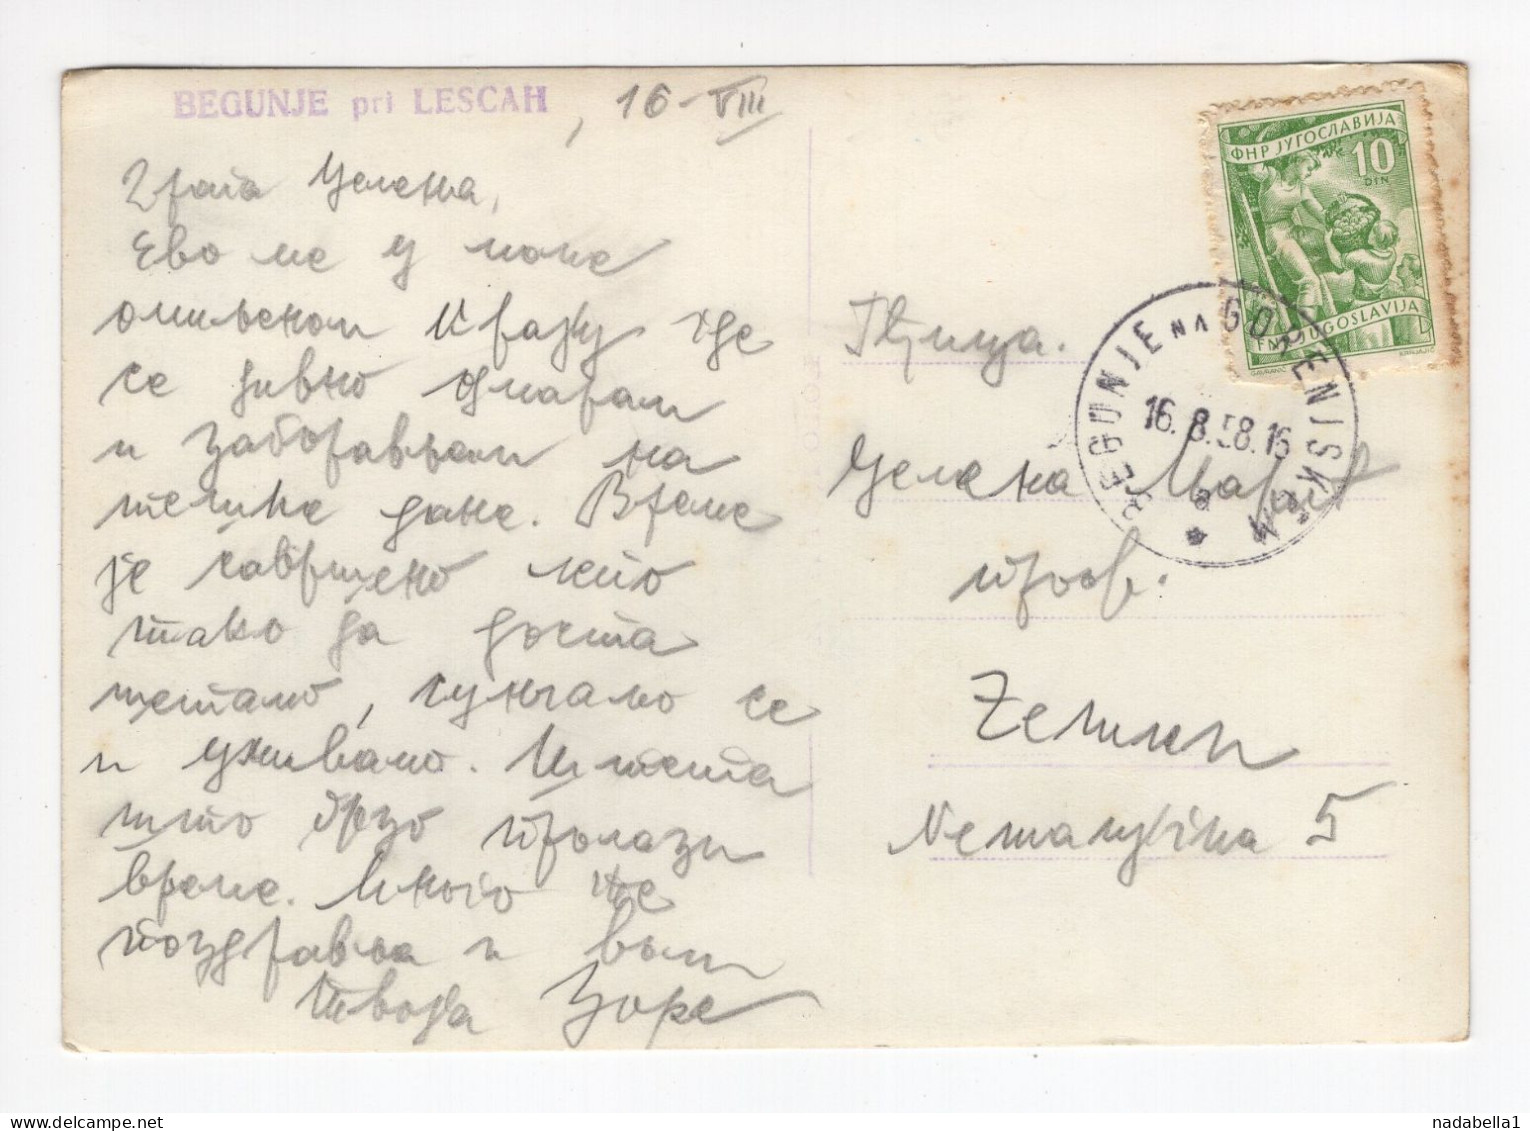 BEGUNJE pri LESCAH , 16-VIII
Драга Јелена,
Ево ме у моме
омиљеном крају где
се дивно одмарам
и заборављам на
тешке дане. Време
је савршено лепо
тако да доста
шетамо, сунчамо се
и уживамо. Штета
што брзо пролази
време. Много те
поздравља и воли
твоја Зоре
ФНР ЈУГОСЛАВИЈА
10
DIN
FNR JUGOSLAVIJA
BEGUNJE NA GORENJSKEM
16.8.58.16
a
Јелена Марић
проф.
Земун
Немањина 5
nadabella1